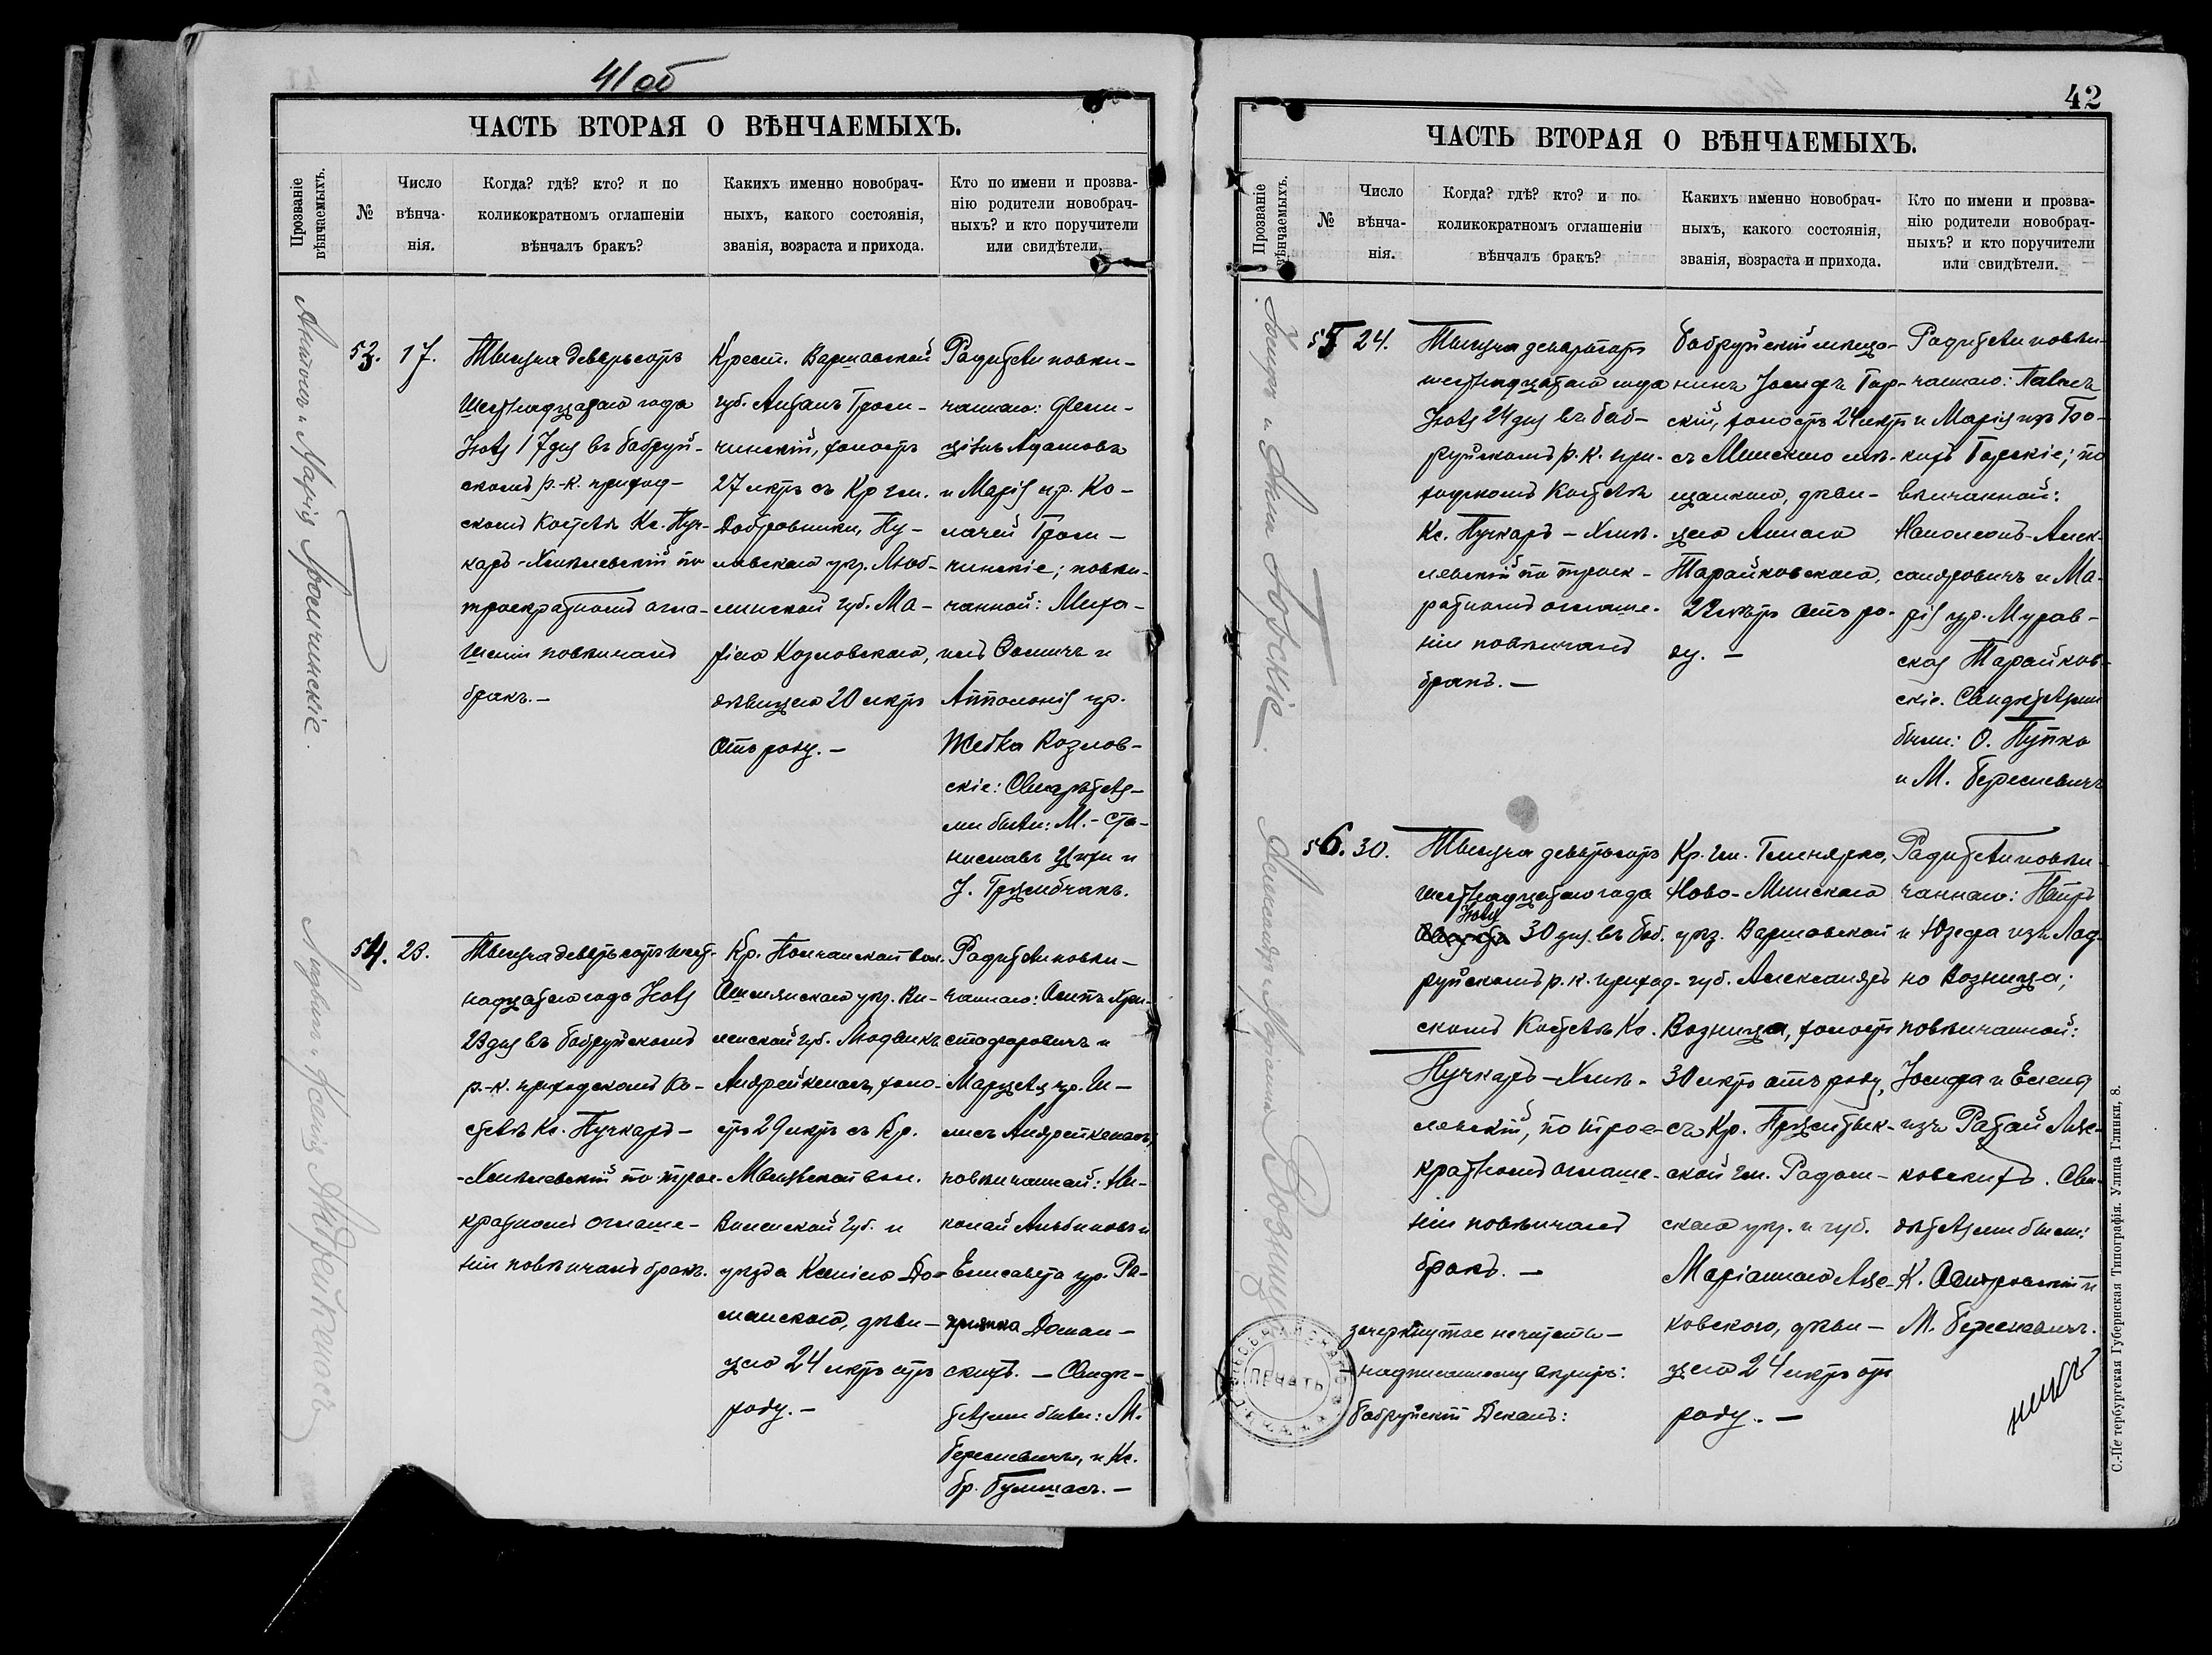 41 об
ЧАСТЬ ВТОРАЯ О ВѢНЧАЕМЫХЪ.
Прозваніе вѣнчаемыхъ.
№
Число вѣнча- нія.
Когда? гдѣ? кто? и по
коликократномъ оглашеніи
вѣнчалъ бракъ?
Какихъ именно новобрач-
ныхъ, какого состоянія,
званія, возраста и прихода.
Кто по имени и прозва-
нію родители новобрач-
ныхъ? и кто поручители
или свидѣтели.
Антонъ и Марія
53.
17.
Тысяча девятьсотъ
шестнадцатаго года
Іюля 17 дня въ Бобруй-
скомъ р.-к. приход-
скомъ костелѣ Кс. Пуч-
каръ-Хмѣлевскій по
троекратномъ огла-
шеніи повѣнчалъ
бракъ.—
Крест. Варшавской
губ. Антонъ
чинскій, холостъ
27 лѣтъ съ Кр гм.
Добровники, Пу-
лавскаго уѣз. Люб-
линской губ. Ма-
ріею Козловскою,
дѣвицею 20 лѣтъ
отъ роду.—
Родители повѣн-
чаннаго: Фели-
ціанъ Адамовъ
и Марія ур. Ко-
чинскіе; повѣн-
чанной: Миха-
илъ и
Апполонія ур.
Козлов-
скіе: Свидѣтеля-
ми были: М.- Ста-
ниславъ и
54.
23.
Тысяча девятьсотъ шест-
надцатаго года Іюля
23 дня въ Бобруйскомъ
р.-к. приходскомъ ко-
стелѣ Кс. Пучкаръ-
-Хмѣлевскій по трое-
кратномъ оглаше-
ніи повѣнчалъ бракъ.
Кр. вол.
Ошмянскаго уѣз. Ви-
ленской губ. Людвикъ
Андрейкенасъ, холо-
стъ 29 лѣтъ съ Кр.
вол.
Виленской губ. и
уѣзда Ксеніею До-
манскою, дѣви-
цею 24 лѣтъ отъ
роду.—
Родители повѣн-
чаннаго: Осипъ
и
ур.
Андрейкенасъ;
повѣнчанной: Ни-
колай и
Елисавета ур. Ра-
Доман-
скихъ.— Свидѣ-
телями были: М.
Бересневичъ, и Кс.
42
ЧАСТЬ ВТОРАЯ О ВѢНЧАЕМЫХЪ.
Прозваніе вѣнчаемыхъ.
№
Число вѣнча- нія.
Когда? гдѣ? кто? и по
коликократномъ оглашеніи
вѣнчалъ бракъ?
Какихъ именно новобрач-
ныхъ, какого состоянія,
званія, возраста и прихода.
Кто по имени и прозва-
нію родители новобрач-
ныхъ? и кто поручители
или свидѣтели.
Іосифъ и Анна Горскіе.
55
24.
Тысяча девятьсотъ
шестнадцатаго года
Іюля 24 дня въ Боб-
руйскомъ р.к. при-
ходскомъ костелѣ
Кс. Пучкаръ-Хмѣ-
левскій по троек-
ратномъ оглаше-
ніи повѣнчалъ
бракъ.—
Бобруйскій мѣща-
нинъ Іосифъ Гор-
скій, холостъ 24 лѣтъ
съ Минскою мѣ-
щанкою, дѣви-
цею Анною
Тарайковскою,
22 лѣтъ отъ ро-
ду.—
Родители повѣн-
чаннаго: Павелъ
и Марія изъ
Горскіе; по
вѣнчанной:
Наполеонъ-Алек-
сандровичъ и Ма-
рія ур. Мурав-
ская Тарайков-
скіе. Свидѣтелями
были: О. Пупко
и М. Бересневичъ
Александръ и Маріанна Возница
56.
30.
Тысяча девятьсотъ
шестнадцатаго года
Іюля
30 дня въ Боб-
руйскомъ р.к. приход-
скомъ костелѣ Кс.
Пучкаръ-Хмѣ-
левскій, по трое-
кратномъ оглаше-
ніи повѣнчалъ
бракъ.—
Кр. гм.
Ново-Минскаго
уѣз. Варшавской
губ. Александръ
Возница, холостъ
30 лѣтъ отъ роду,
съ Кр.
ской гм. Радом-
скаго уѣз. и губ.
Маріанною
ковскою, дѣви-
цею 24 лѣтъ отъ
роду.—
Родители повѣн-
чаннаго: Петръ
и Юзефа изъ
Возница;
повѣнчанной:
Іосифа и Елена
изъ Ратай
ковскихъ. Сви-
дѣтелями были:
К. и
М. Бересневичъ.
зачеркнутое не читать-
надписанному вѣрить:
Бобруйскій Деканъ:
ПЕЧАТЬ
С.-Петербургская Губернская Типографія. Улица Глинки, 8.